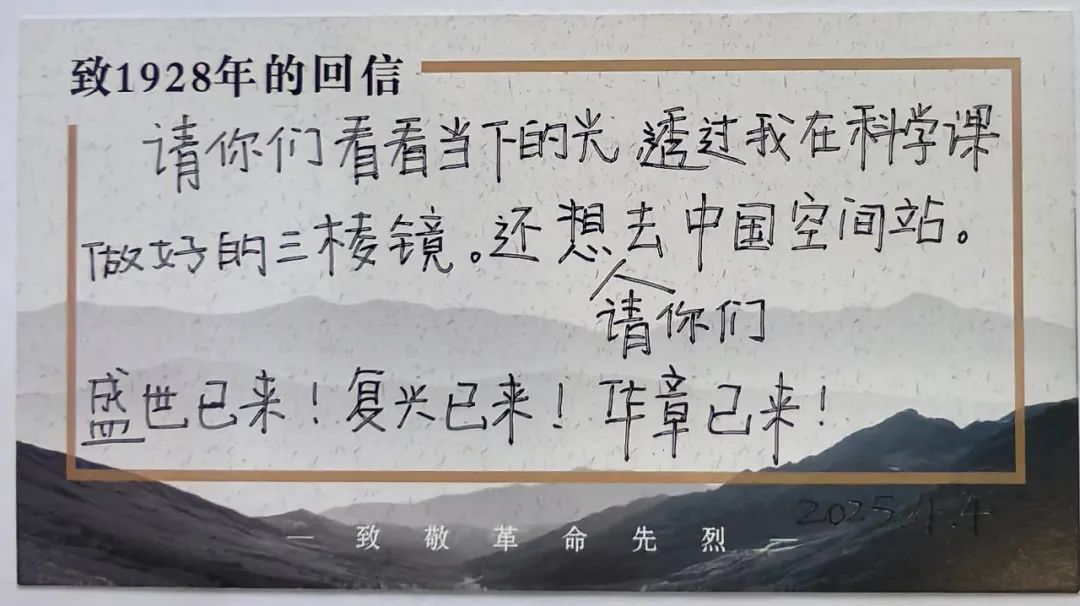 致1928年的回信
请你们看看当下的光 透过我在科学课
做好的三棱镜。还想去中国空间站。
请你们
盛世已来！复兴已来！华章已来！
2025.4.4
— 致敬革命先烈 —